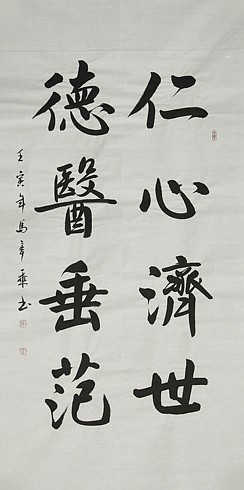 仁心濟世
德醫垂范
壬寅年馬彦乘书